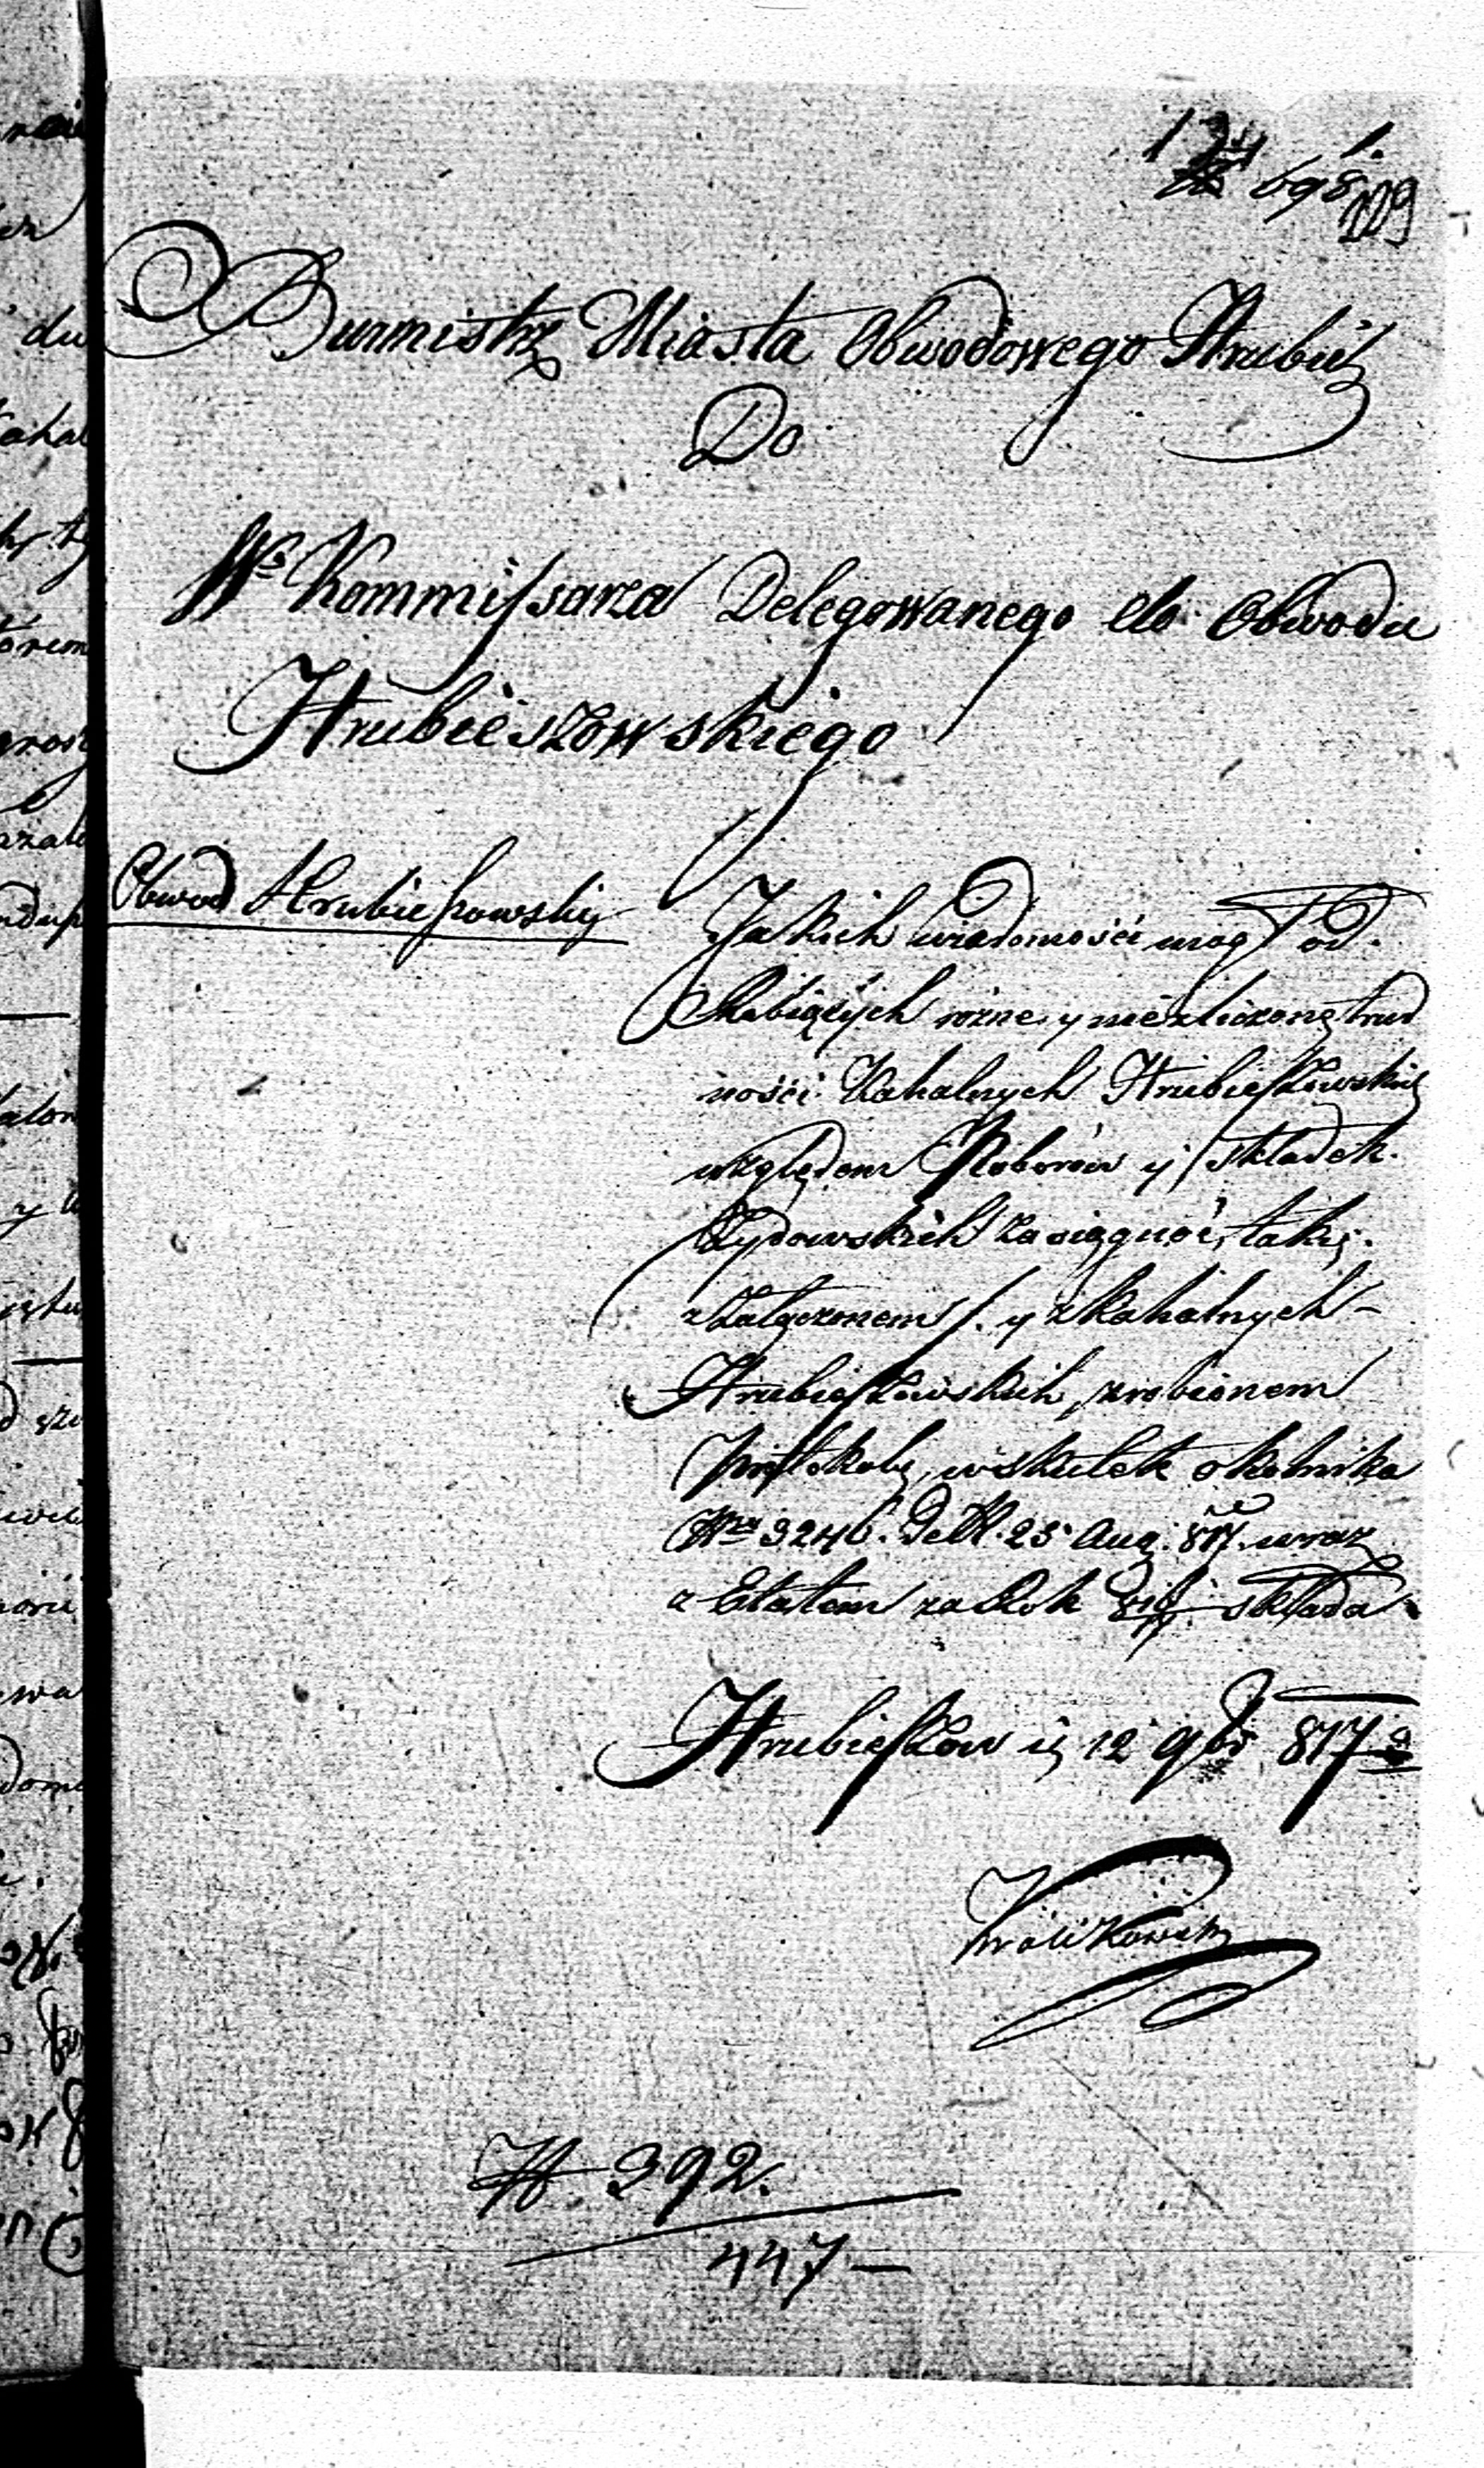 698
Burmistrz Miasta Obwodowego Hrubie
Do
Kommissarza Delegowanego do Obwodu
Hrubieszowskiego
Obwod Hrubieszowski
Jakich wiadomości mogł od
Robiących rożne y niezliczone trud
ności Kahalnych Hrubieszowskich
względem Poborow y składek
Żydowskich zasięgnąć, takie
z załączonem /. y z Kahalnych
Hrubieszowskich zrobionem
w skutek okolnika
Nro 3246. 25 Aug: 817. wraz
z Etatem za Rok składa
Hrubieszow 12 9bra 817
Krolikowski
N 392.
447